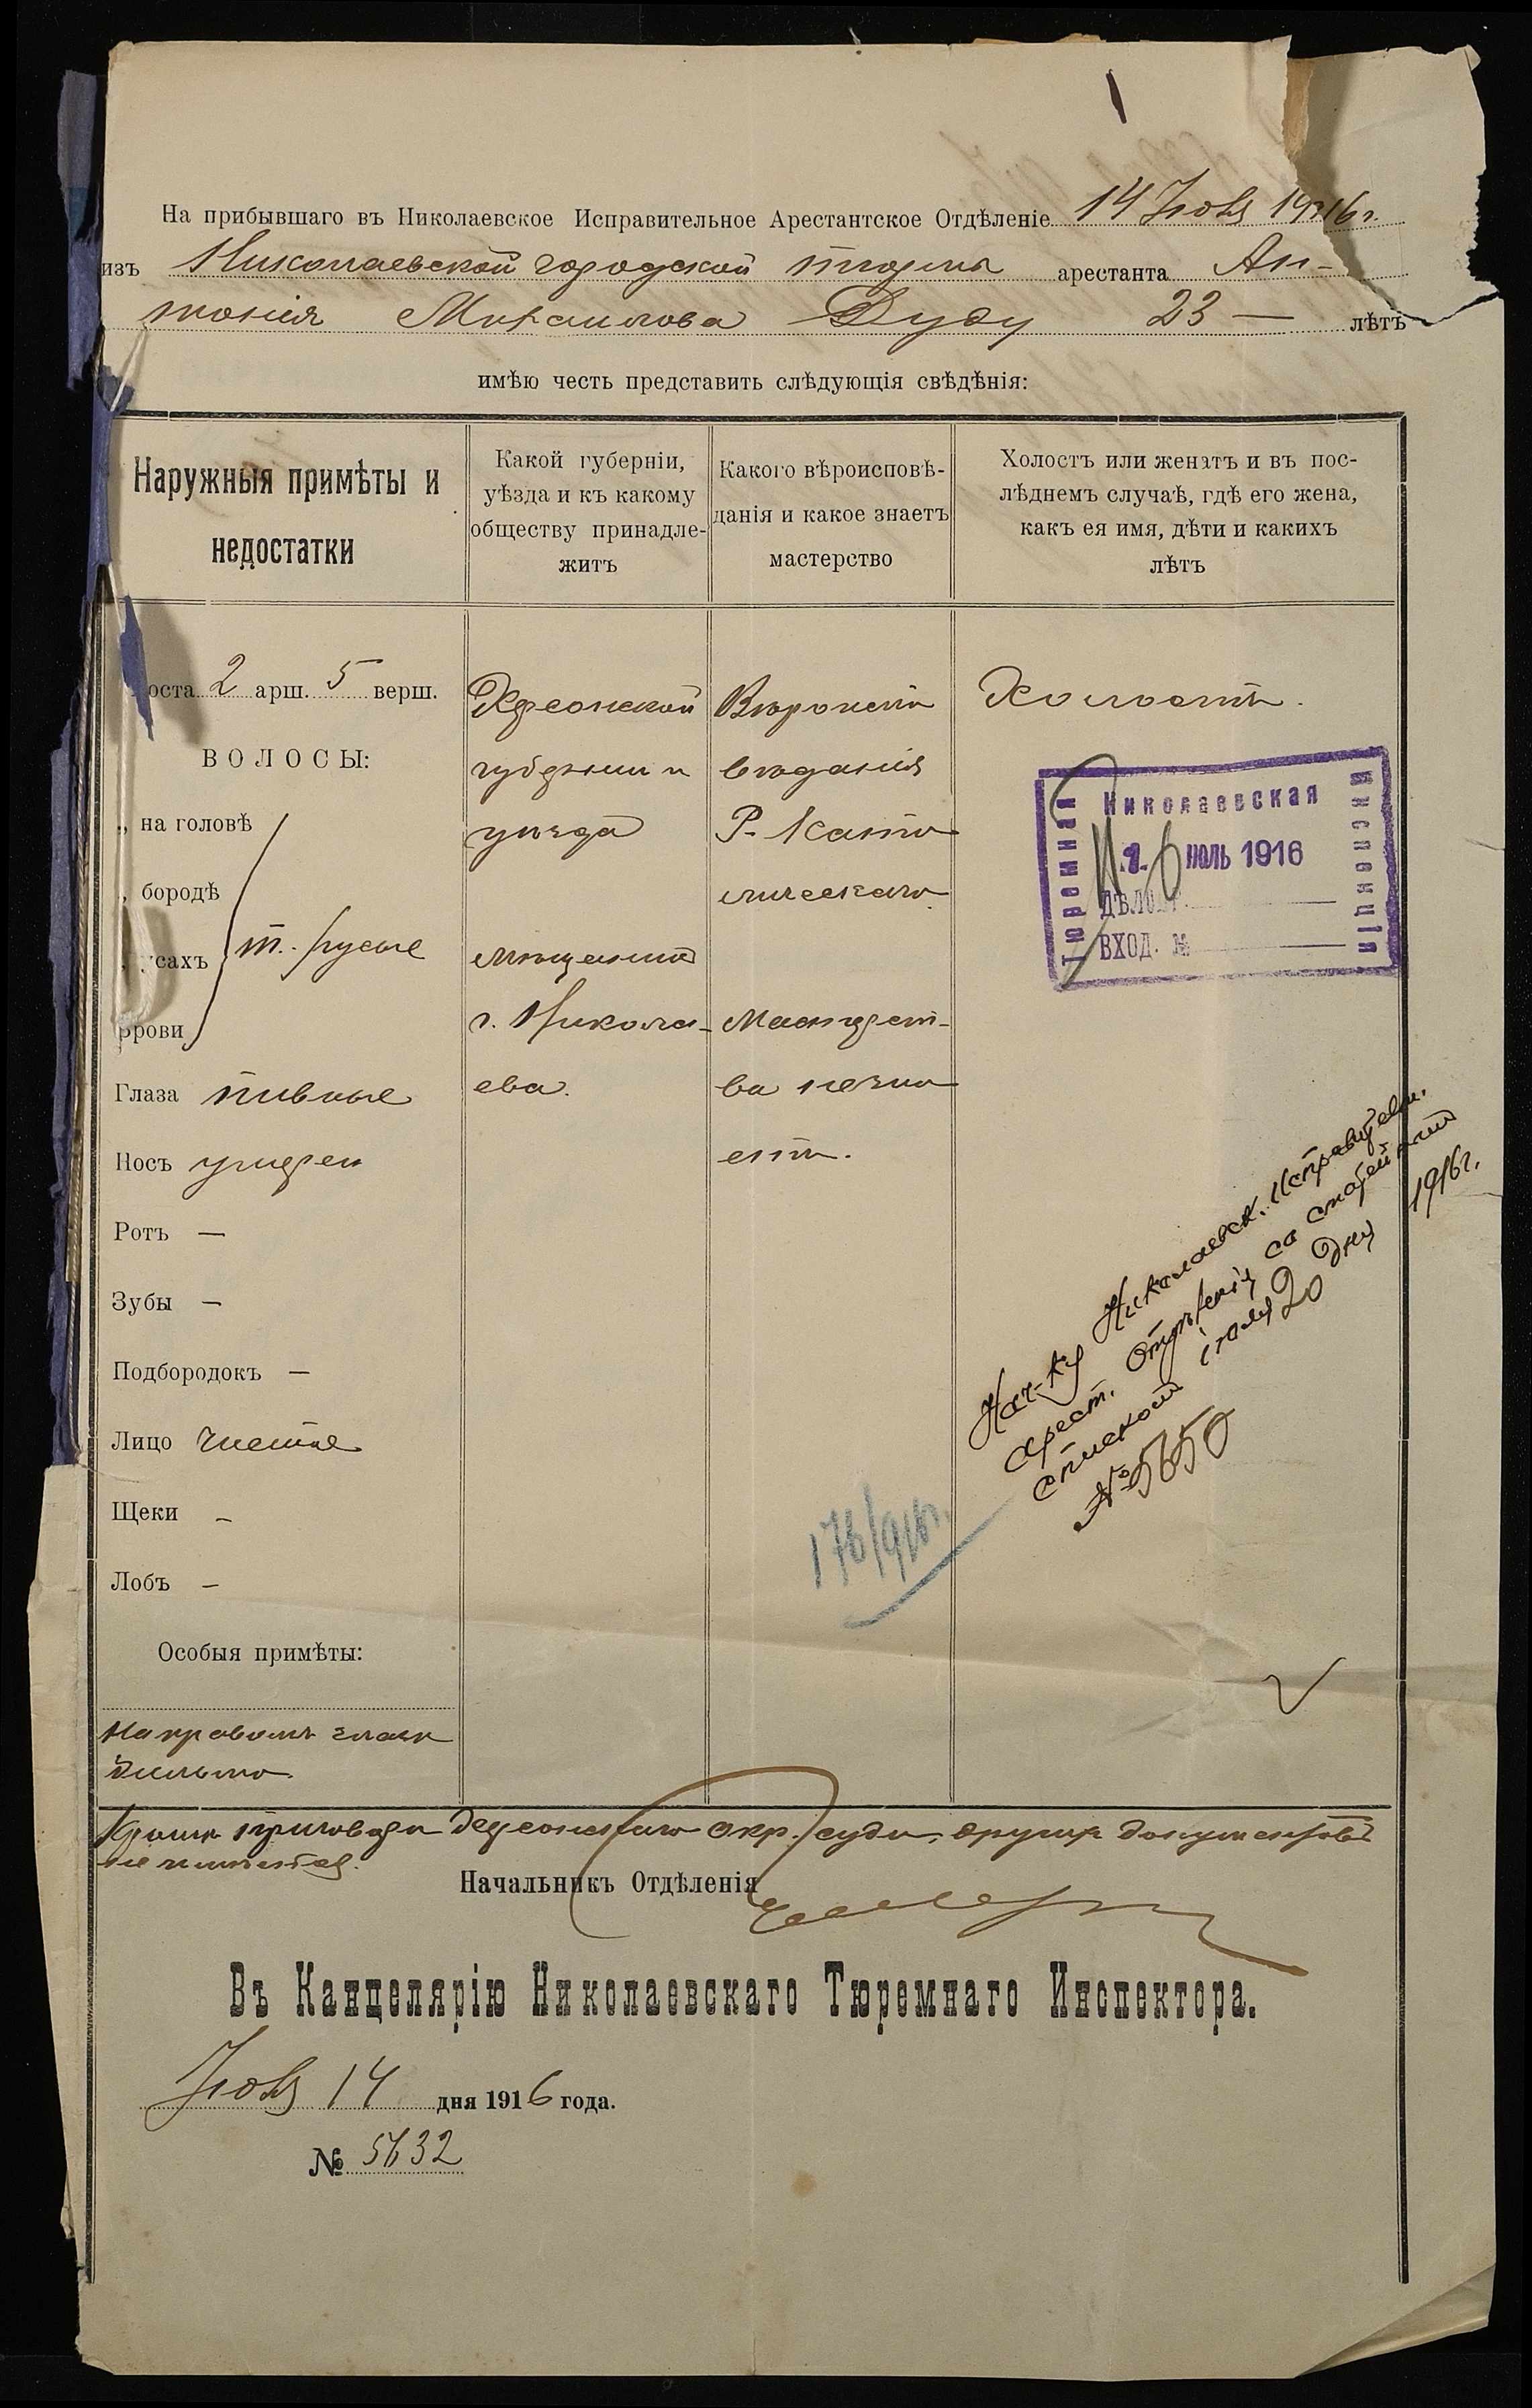 На прибывшаго въ Николаевское Исправительное Арестантское Отдѣленіе 14 Іюля 1916 г.
изъ Николаевской городской тюрьмы арестанта Ан-
тонія Михаилова Дуду 23 — лѣтъ
имѣю честь представить слѣдующія свѣдѣнія:
Наружныя примѣты и
недостатки
Какой губерніи,
уѣзда и къ какому
обществу принадле-
житъ
Какого вѣроисповѣ-
данія и какое знаетъ
мастерство
Холостъ или женатъ и въ пос-
лѣднемъ случаѣ, гдѣ его жена,
какъ ея имя, дѣти и какихъ
лѣтъ
Роста 2 арш. 5 верш.
ВОЛОСЫ:
„ на головѣ
„ бородѣ
„ усахъ
брови
т. русые
Глаза пивные
Носъ умѣрен
Ротъ —
Зубы —
Подбородокъ —
Лицо чистое
Щеки —
Лобъ —
Особыя примѣты:
На правомъ глазѣ
бѣльмо.
Херсонской
губерніи и
уѣзда
мѣщанинъ
г. Никола-
ева.
Вѣроиспо-
вѣданія
Р. Като-
лическаго
Мастерст-
ва незна-
етъ.
Холостъ.
Николаевская
Тюремная
Инспекція
1 6 ІЮЛЬ 1916
ДѢЛО №
ВХОД. №
Нач-ку Николаевск. Исправител.
арест. Отдѣленія со статейным
спискомъ іюля 20 дня 1916 г.
№ 5650
176/916 г.
Кромѣ приговора Херсонскаго Окр. суда, другихъ документовъ
не имѣется.
Начальникъ Отдѣленія
Въ Канцелярію Николаевскаго Тюремнаго Инспектора.
Іюля 14 дня 1916 года.
№ 5632